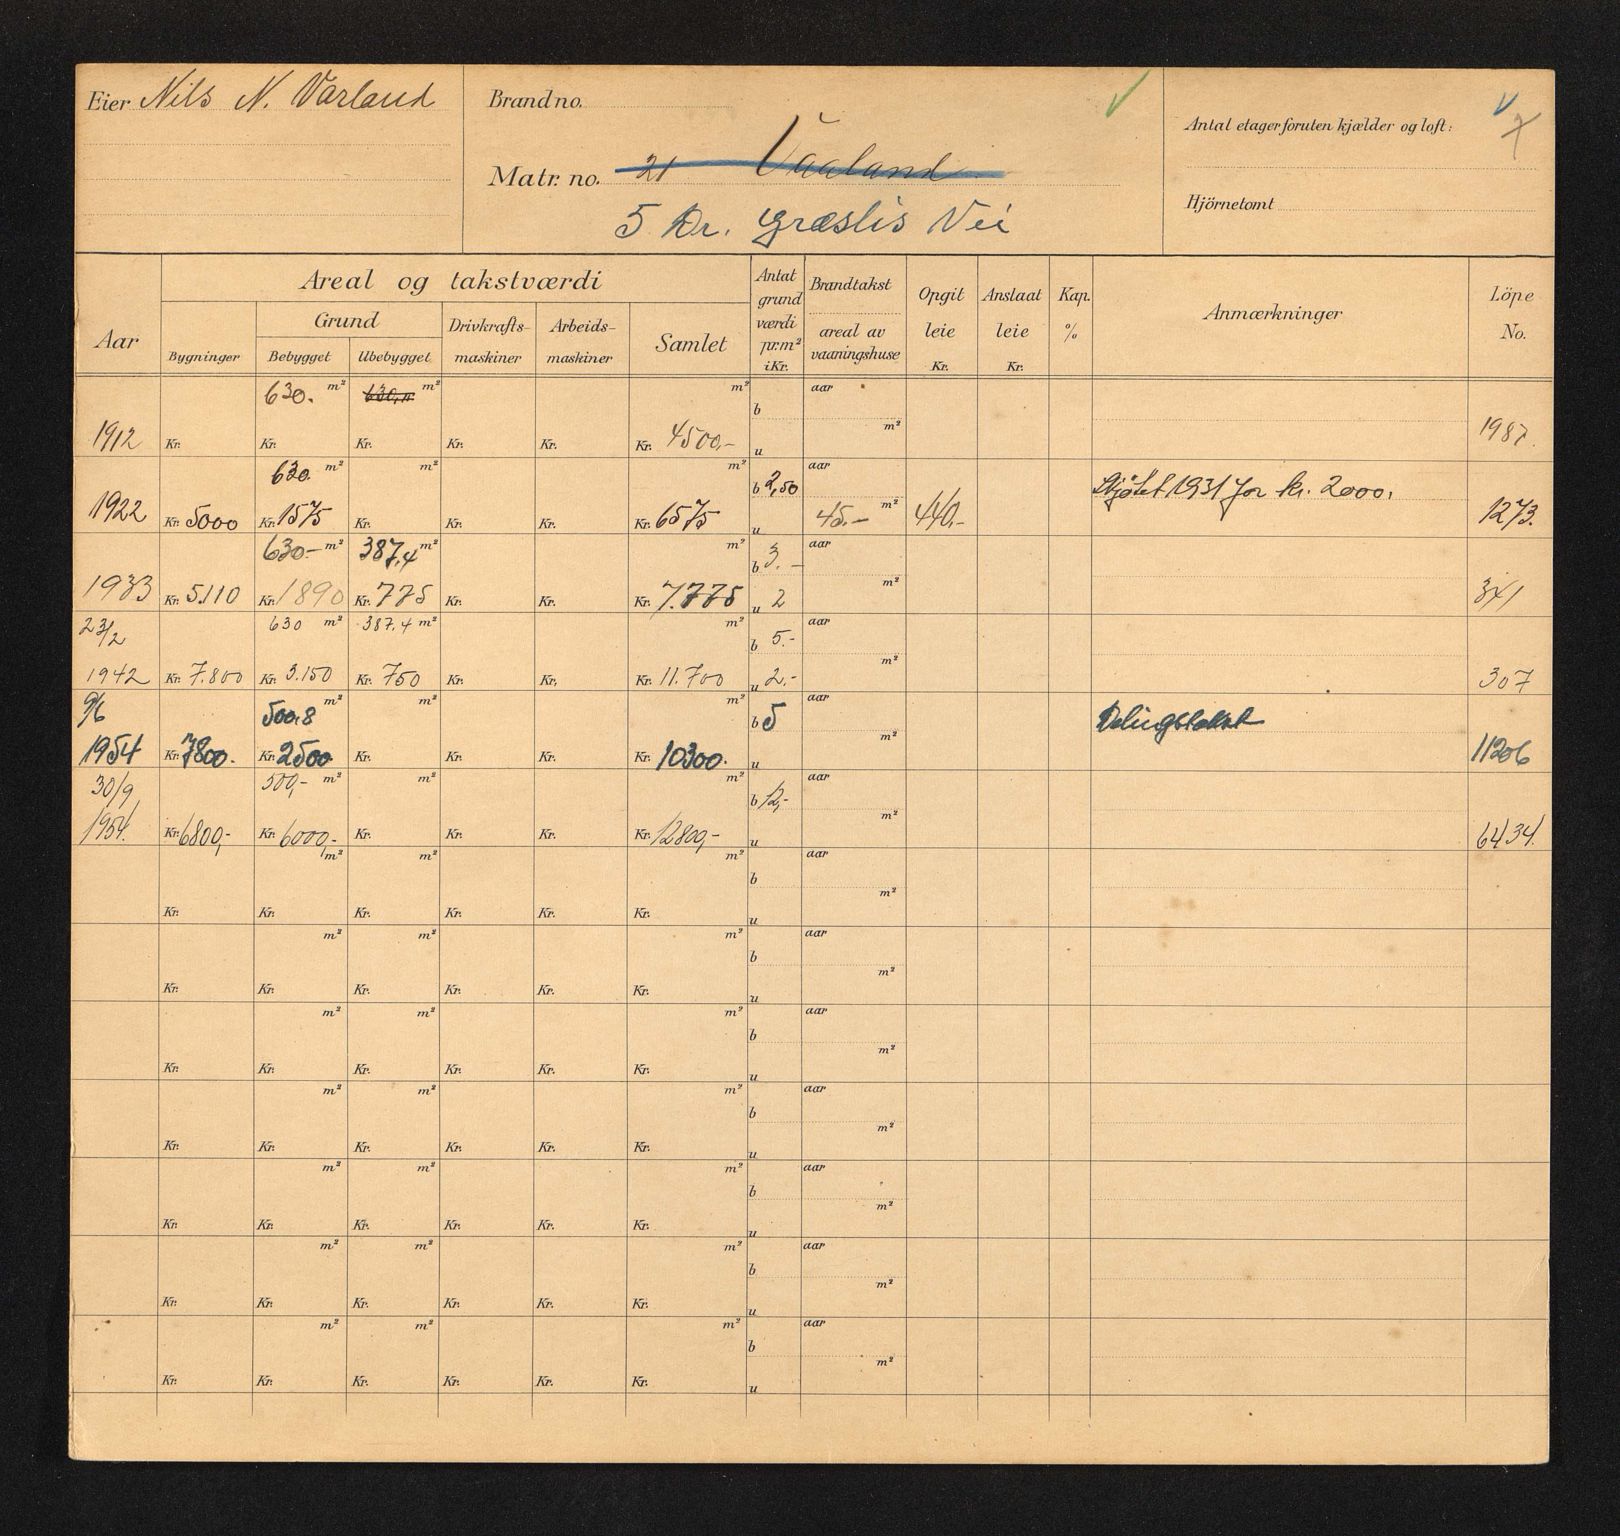 Eier Nils N. Varland
Brand no.
Matr. no. 21 Vaaland
5 Dr. Græslis Vei
Antal etager foruten kjælder og loft:
Hjörnetomt
Aar
Areal og takstværdi
Bygninger
Grund
Bebygget
Ubebygget
Drivkrafts-
maskiner
Arbeids-
maskiner
Samlet
Antat
grund
værdi
pr.m²
i Kr.
Brandtakst
areal av
vaaningshuse
Opgit
leie
Kr.
Anslaat
leie
Kr.
Kap.
%
Anmærkninger
Löpe
No.
630. m² 630,- m² m² aar
b
m²
1912 Kr. Kr. Kr. Kr. Kr. Kr. 4500,- u 1987.
630. m² m² m² aar
b 2,50 Skjötet 1931 for kr. 2000.
1922 Kr. 5000 Kr. 1575 Kr. Kr. Kr. Kr. 6575 u 45.- m² 440,- 1273.
630.- m² 387,4 m² m² b 3.- aar
m²
1933 Kr. 5.110 Kr. 1890 Kr. 775 Kr. Kr. Kr. 7.775 u 2 341
23/2 630 m² 387.4 m² m² aar
b 5.-
m²
1942 Kr. 7.800 Kr. 3.150 Kr. 750 Kr. Kr. Kr. 11.700 u 2.- 307
9/6 500,8 m² m² m² b 5 aar Delingstakst
m²
1954 Kr. 7800. Kr. 2500 Kr. Kr. Kr. Kr. 10300. u 11206
30/9 500,- m² m² m² aar
b 12,-
m²
1954. Kr. 6800,- Kr. 6000,- Kr. Kr. Kr. Kr. 12800,- u 6434.
m² m² m² aar
b
m²
Kr. Kr. Kr. Kr. Kr. Kr. u
m² m² m² aar
b
m²
Kr. Kr. Kr. Kr. Kr. Kr. u
m² m² m² aar
b
m²
Kr. Kr. Kr. Kr. Kr. Kr. u
m² m² m² aar
b
m²
Kr. Kr. Kr. Kr. Kr. Kr. u
m² m² m² aar
b
m²
Kr. Kr. Kr. Kr. Kr. Kr. u
m² m² m² aar
b
m²
Kr. Kr. Kr. Kr. Kr. Kr. u
m² m² m² aar
b
m²
Kr. Kr. Kr. Kr. Kr. Kr. u